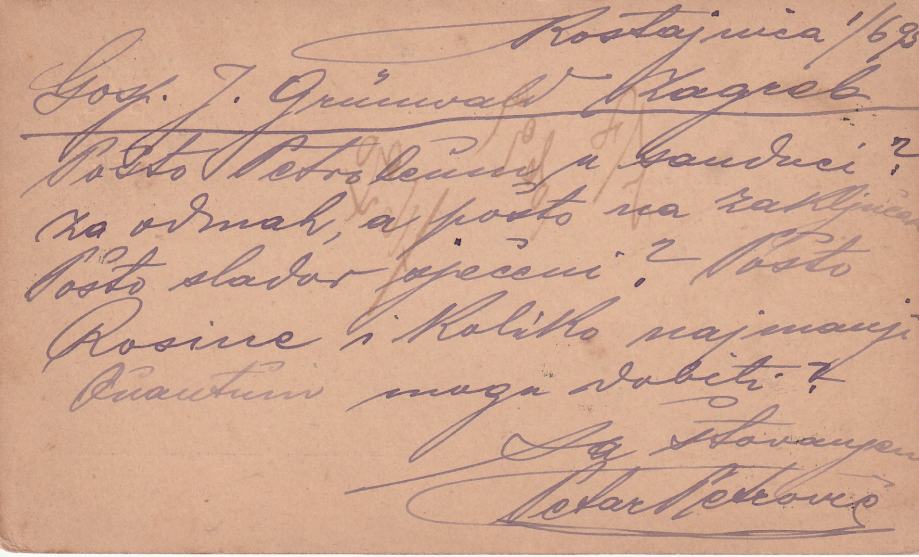 Kostajnica 1/6 93
Gosp. J. Grünwald Zagreb
Pošto Petroleum u sanduci?
za odmah, a pošto na zaključak
Pošto slador sječeni? Pošto
Rosine i koliko najmanji
Quantum mogu dobiti?
Sa štovanjem
Petar Petrović